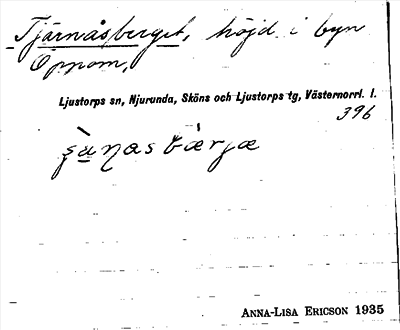 Tjärnåsberget, höjd i byn
Öppom,
Ljustorps sn, Njurunda, Sköns och Ljustorps tg, Västernorrl. l.
396
ANNA-LISA ERICSON 1935